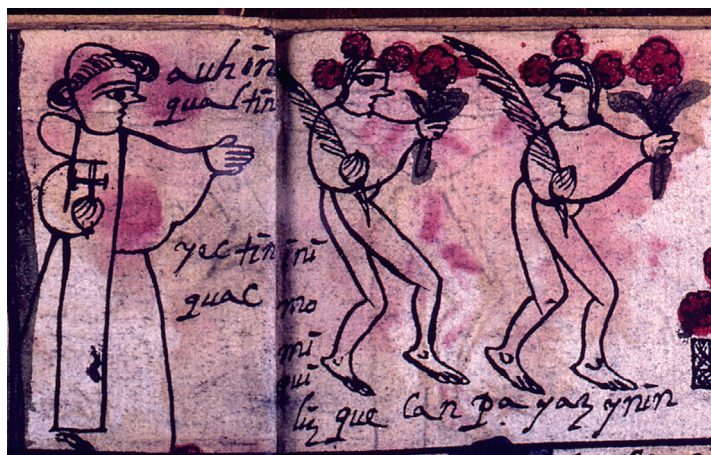 auh in
qualtin
yectin
quac
ini
mo
mi
qui
liz que can pa yaz ynin